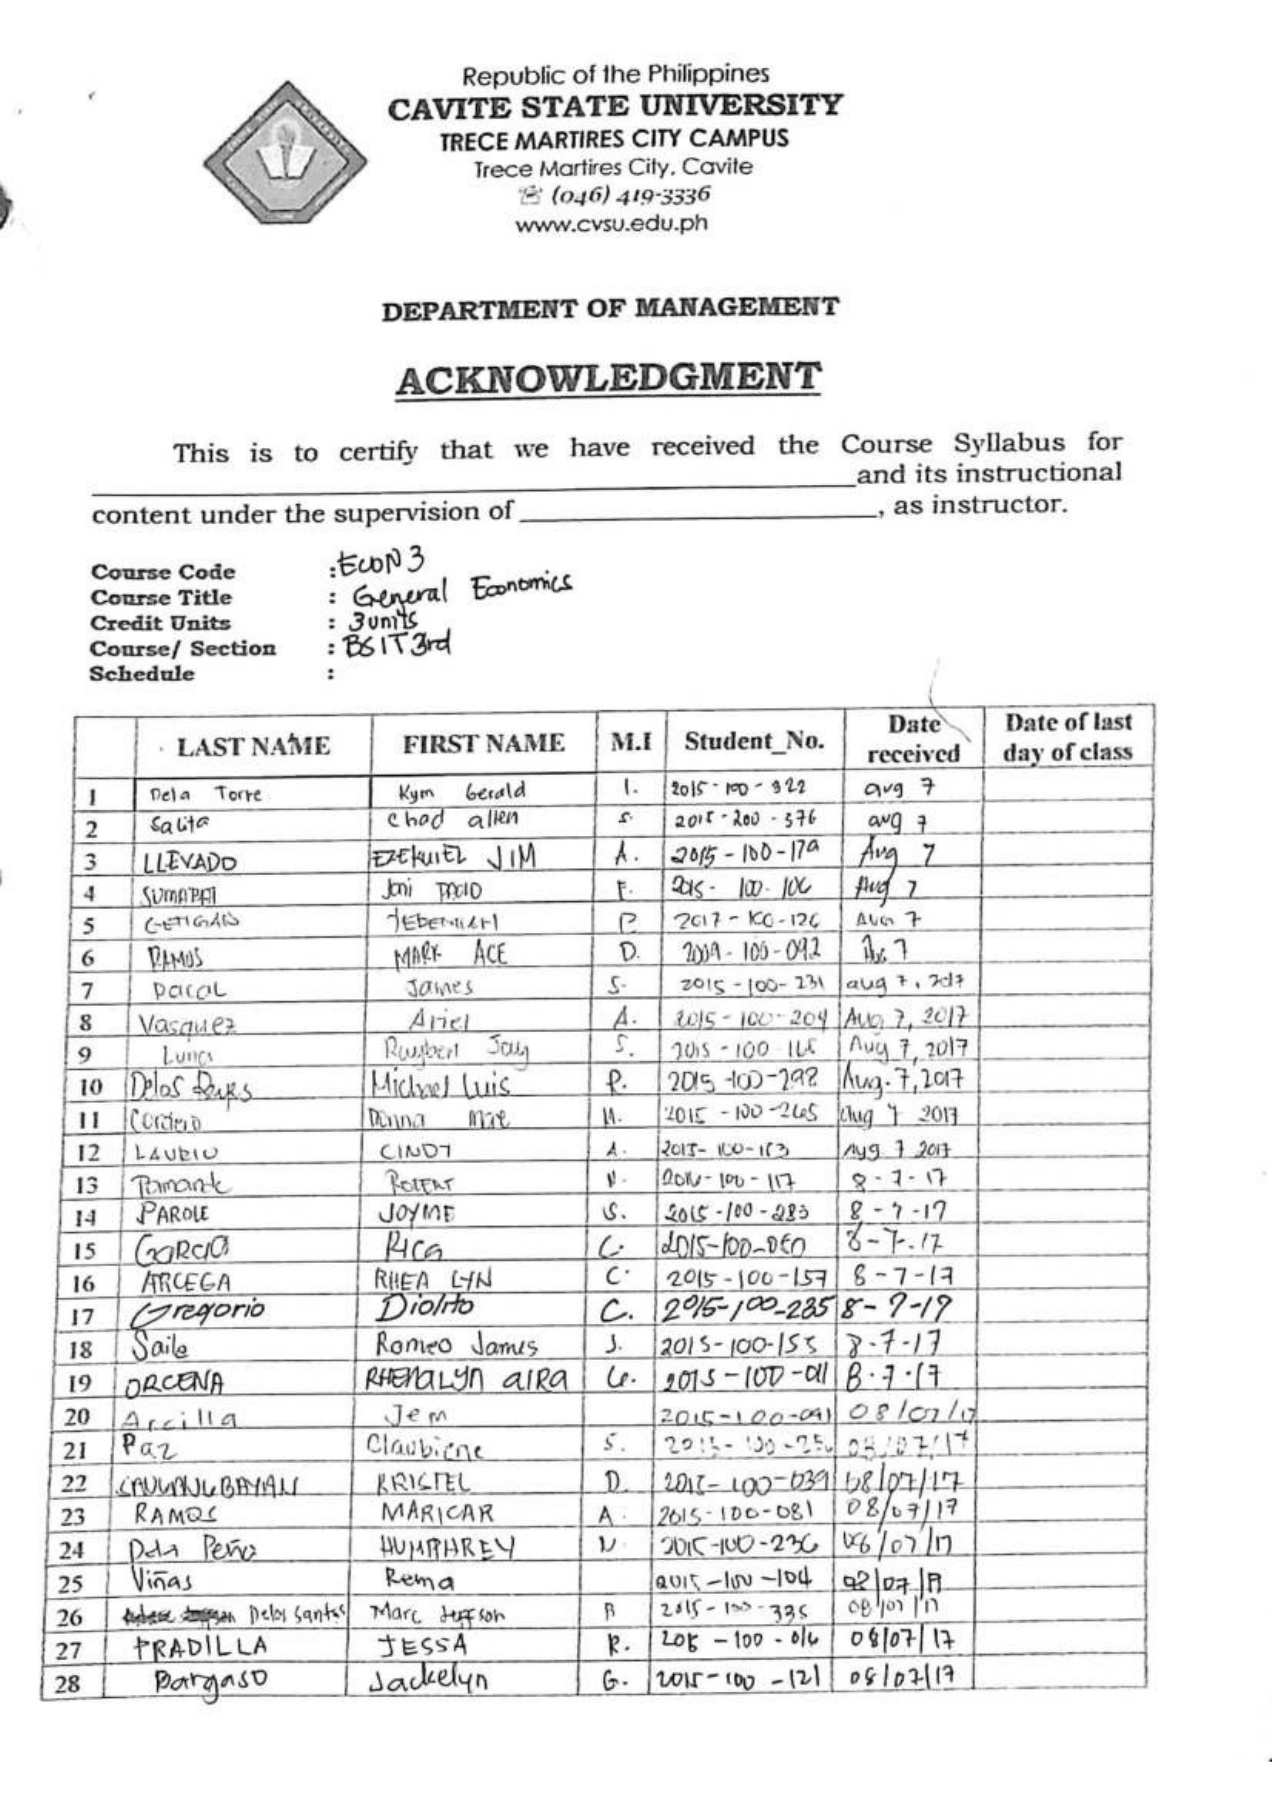 Republic of the Philippines
CAVITE STATE UNIVERSITY
TRECE MARTIRES CITY CAMPUS
Trece Martires City, Cavite
☏ (046) 419-3336
www.cvsu.edu.ph
DEPARTMENT OF MANAGEMENT
ACKNOWLEDGMENT
This is to certify that we have received the Course Syllabus for
and its instructional
content under the supervision of , as instructor.
Course Code : ECON 3
Course Title : General Economics
Credit Units : 3 units
Course/ Section : BSIT 3rd
Schedule :
LAST NAME FIRST NAME M.I Student_No. Date received Date of last day of class
1 Dela Torre Kym Gerald I. 2015-100-322 aug 7
2 Salita Chad allen S. 2015-200-376 aug 7
3 LLEVADO EZEKUIEL JIM A. 2015-100-179 Aug 7
4 Joni F. 2015-100-106 Aug 7
5 2017-100-126 Aug 7
6 RAMOS MARK ACE D. 2009-100-092 Aug 7
7 Dacal James S. 2015-100-231 aug 7, 2017
8 Vasquez Ariel A. 2015-100-204 Aug 7, 2017
9 Luna Jay S. 2015-100-165 Aug 7, 2017
10 Delos Reyes Michael Luis R. 2015-100-292 Aug. 7, 2017
11 Cordero Donna Mae M. 2015-100-265 Aug 7 2017
12 CINDY A. 2015-100-153 Aug 7 2017
13 100-117 8-7-17
14 PAROLE JOYME S. 2015-100-283 8-7-17
15 GARCIA RICA C. 8-7-17
16 ARCEGA RHEA LYN C. 2015-100-157 8-7-17
17 Gregorio Diolito C. 2015-100-235 8-7-17
18 Saile Romeo James J. 2015-100-155 8-7-17
19 ORCENA RHEMALYN AIRA G. 2015-100-011 8-7-17
20 Arcilla Jem 2015-100-091 08/07/17
21 Paz Claubiene S. 2015-100-256 08/07/17
22 KRISTEL D. 2015-100-039 08/07/17
23 RAMOS MARICAR A. 2015-100-081 08/07/17
24 Dela Peña HUMPHREY N. 2015-100-236 08/07/17
25 Viñas Rema 2015-100-104 08/07/17
26 Delos Santos Marc Jefson B 2015-100-335 08/07/17
27 PRADILLA JESSA R. 2015-100-016 08/07/17
28 Bargaso Jackelyn G. 2015-100-121 08/07/17